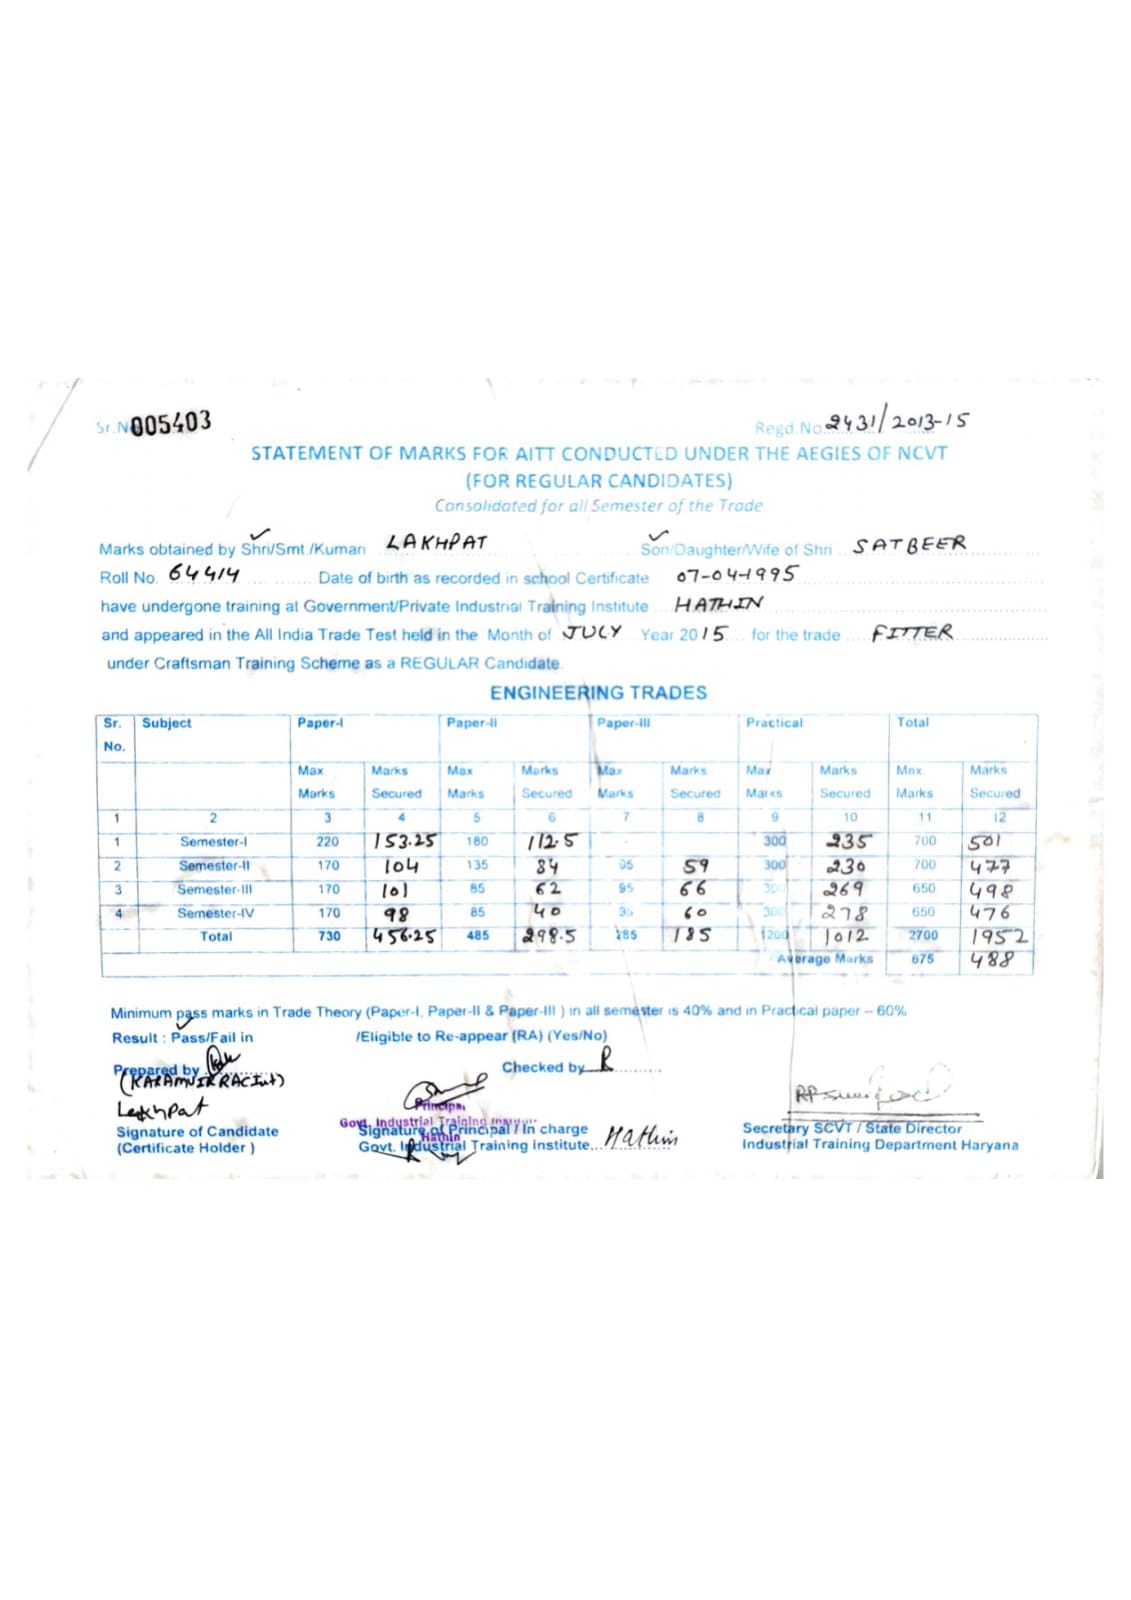 Sr.No 005403 Regd.No. 2431/2013-15
STATEMENT OF MARKS FOR AITT CONDUCTED UNDER THE AEGIES OF NCVT
(FOR REGULAR CANDIDATES)
Consolidated for all Semester of the Trade
Marks obtained by Shri/Smt./Kumari LAKHPAT Son/Daughter/Wife of Shri SATBEER
Roll No. 64414 Date of birth as recorded in school Certificate 07-04-1995
have undergone training at Government/Private Industrial Training Institute HATHIN
and appeared in the All India Trade Test held in the Month of JULY Year 2015 for the trade FITTER
under Craftsman Training Scheme as a REGULAR Candidate.
ENGINEERING TRADES
Sr. Subject Paper-I Paper-II Paper-III Practical Total
No.
Max Marks Max Marks Max Marks Max Marks Max Marks
Marks Secured Marks Secured Marks Secured Marks Secured Marks Secured
1 2 3 4 5 6 7 8 9 10 11 12
1 Semester-I 220 153.25 180 112.5 300 235 700 501
2 Semester-II 170 104 135 84 95 59 300 230 700 477
3 Semester-III 170 101 85 62 95 66 300 269 650 498
4 Semester-IV 170 98 85 40 95 60 300 278 650 476
Total 730 456.25 485 298.5 285 185 1200 1012 2700 1952
Average Marks 675 488
Minimum pass marks in Trade Theory (Paper-I, Paper-II & Paper-III ) in all semester is 40% and in Practical paper – 60%
Result : Pass/Fail in /Eligible to Re-appear (RA) (Yes/No)
Prepared by Checked by
Lakhpat
Principal
Govt. Industrial Training Institute
Hathin
Signature of Candidate Signature of Principal / In charge Secretary SCVT / State Director
(Certificate Holder ) Govt. Industrial Training Institute... Hathin Industrial Training Department Haryana